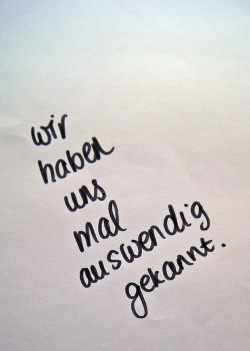 wir
haben
uns
mal
auswendig
gekannt.